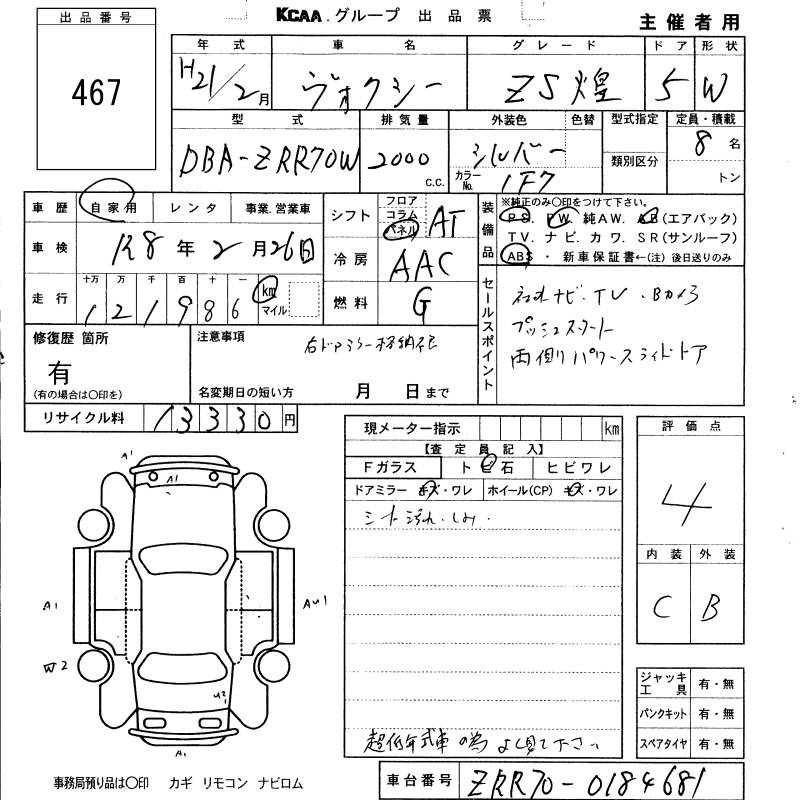 KCAA.グループ 出品票
主催者用
出品番号
467
年式 車名 グレード ドア 形状
H21/2月 ヴォクシー ZS煌 5 W
型式 排気量 外装色 色替 型式指定 定員・積載
DBA-ZRR70W 2000 C.C. シルバー 8名
類別区分
カラーNo. 1F7 トン
車歴 自家用 レンタ 事業.営業車
車検 R8年2月26日
走行 十万 万 千 百 十 一
121986 km マイル
シフト フロア コラム パネル AT
冷房 AAC
燃料 G
装備品
※純正のみ〇印をつけて下さい。
PS. PW. 純AW. AB(エアバック)
TV. ナビ. カワ. SR(サンルーフ)
ABS ・ 新車保証書←(注)後日送りのみ
セールスポイント
社外ナビ・TV・Bカメラ
プッシュスタート
両側パワースライドドア
修復歴 箇所
有
(有の場合は〇印を)
注意事項
右ドアミラー格納不良
名変期日の短い方 月 日まで
リサイクル料 13330円
現メーター指示 km
【査定員記入】
Fガラス トビ石 ヒビワレ
ドアミラー キズ・ワレ ホイール(CP) キズ・ワレ
シート汚れ.しみ.
超低年式車の為よく見て下さい
評価点
4
内装 外装
C B
A1
A1
A1
AU1
W2
U2
A1
ジャッキ工具 有・無
パンクキット 有・無
スペアタイヤ 有・無
事務局預り品は〇印 カギ リモコン ナビロム
車台番号 ZRR70-0184681